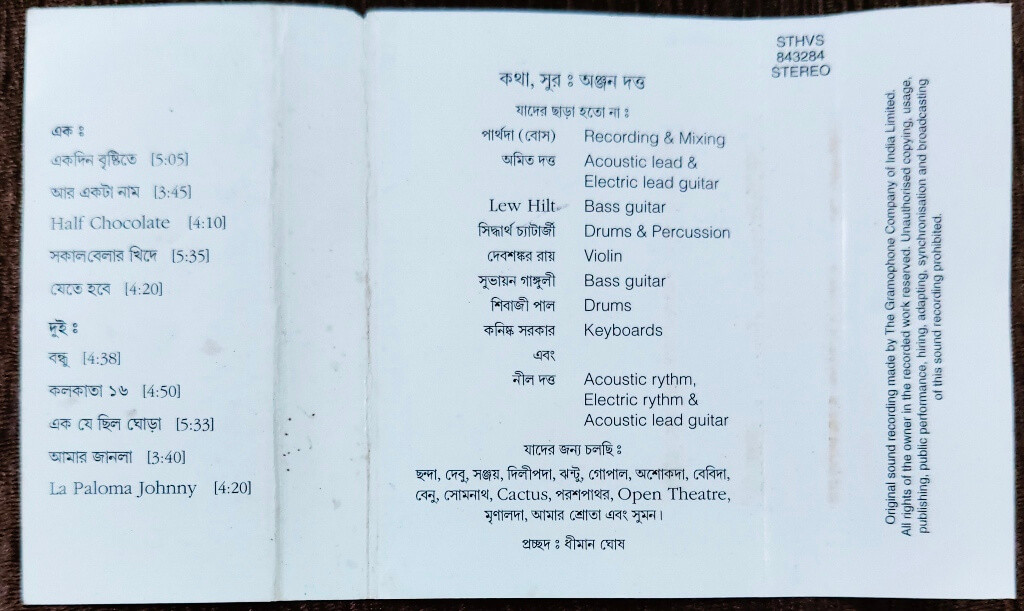 একঃ
একদিন বৃষ্টিতে [5:05]
আর একটা নাম [3:45]
Half Chocolate [4:10]
সকালবেলার খিদে [5:35]
যেতে হবে [4:20]
দুইঃ
বন্ধু [4:38]
কলকাতা ১৬ [4:50]
এক যে ছিল ঘোড়া [5:33]
আমার জানলা [3:40]
La Paloma Johnny [4:20]
STHVS
843284
STEREO
কথা, সুর ঃ অঞ্জন দত্ত
যাদের ছাড়া হতো নাঃ
পার্থদা (বোস) Recording & Mixing
অমিত দত্ত Acoustic lead &
Electric lead guitar
Lew Hilt Bass guitar
সিদ্ধার্থ চ্যাটার্জী Drums & Percussion
দেবশঙ্কর রায় Violin
সুভায়ন গাঙ্গুলী Bass guitar
শিবাজী পাল Drums
কনিষ্ক সরকার Keyboards
এবং
নীল দত্ত Acoustic rythm,
Electric rythm &
Acoustic lead guitar
যাদের জন্য চলছিঃ
ছন্দা, দেবু, সঞ্জয়, দিলীপদা, ঝন্টু, গোপাল, অশোকদা, বেবিদা,
বেনু, সোমনাথ, Cactus, পরশপাথর, Open Theatre,
মৃণালদা, আমার শ্রোতা এবং সুমন।
প্রচ্ছদ ঃ ধীমান ঘোষ
Original sound recording made by The Gramophone Company of India Limited.
All rights of the owner in the recorded work reserved. Unauthorised copying, usage,
publishing, public performance, hiring, adapting, synchronisation and broadcasting
of this sound recording prohibited.